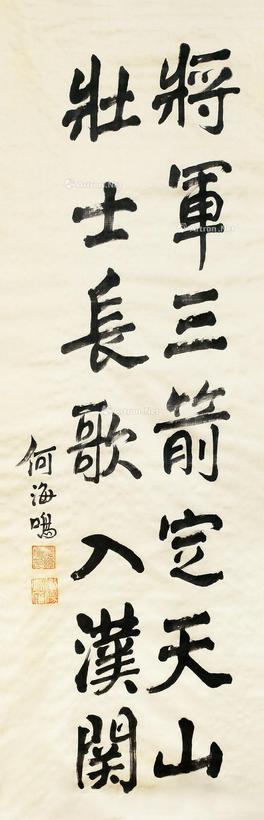 將軍三箭定天山
壯士長歌入漢関
何海鳴
Artron.Net
Artron.Net
Artron.Net